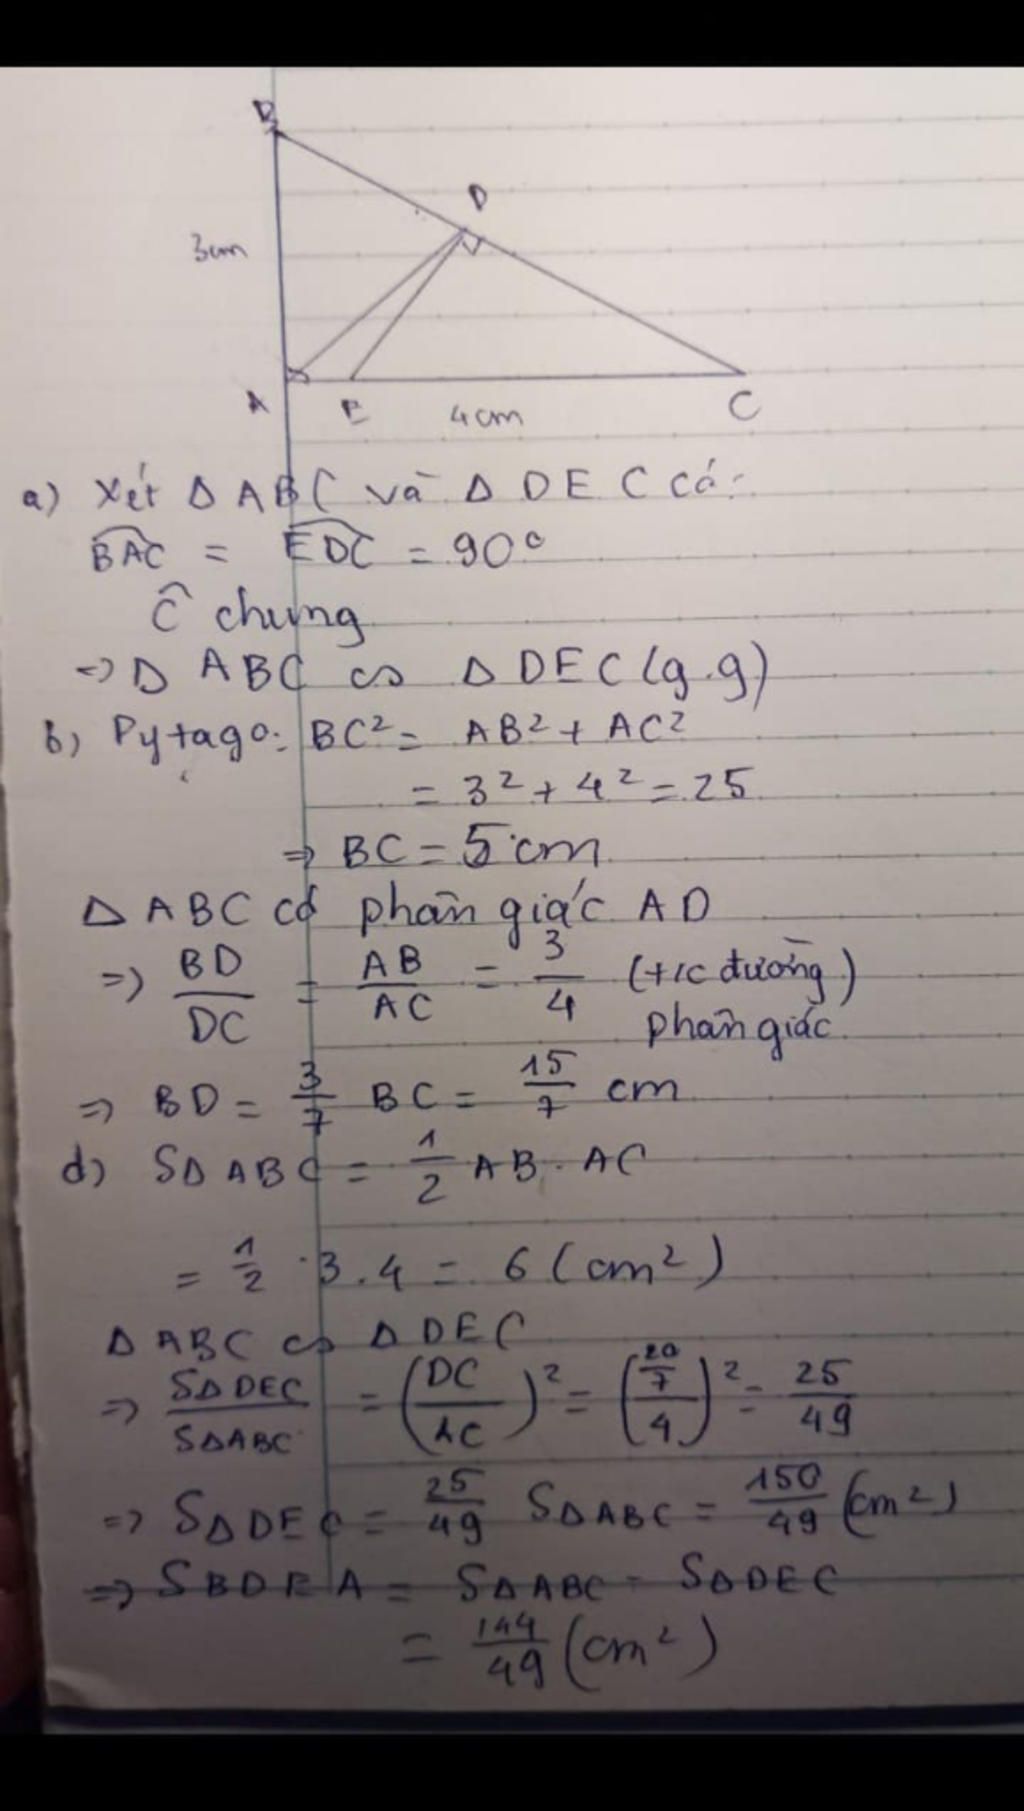 B
D
3cm
A E 4cm C
a) Xét Δ ABC và Δ DEC có:
BAC^ = EDC^ = 90°
Ĉ chung
=> Δ ABC ∽ Δ DEC (g.g)
b) Pytago: BC² = AB² + AC²
= 3² + 4² = 25
=> BC = 5 cm
Δ ABC có phân giác AD
=> BD/DC = AB/AC = 3/4 (t/c đường phân giác)
=> BD = 3/7 BC = 15/7 cm
d) SΔABC = 1/2 AB. AC
= 1/2 . 3.4 = 6 (cm²)
Δ ABC ∽ Δ DEC
=> SΔDEC/SΔABC = (DC/AC)² = ((20/7)/4)² = 25/49
=> SΔDEC = 25/49 SΔABC = 150/49 (cm²)
=> SBDEA = SΔABC - SΔDEC
= 144/49 (cm²)